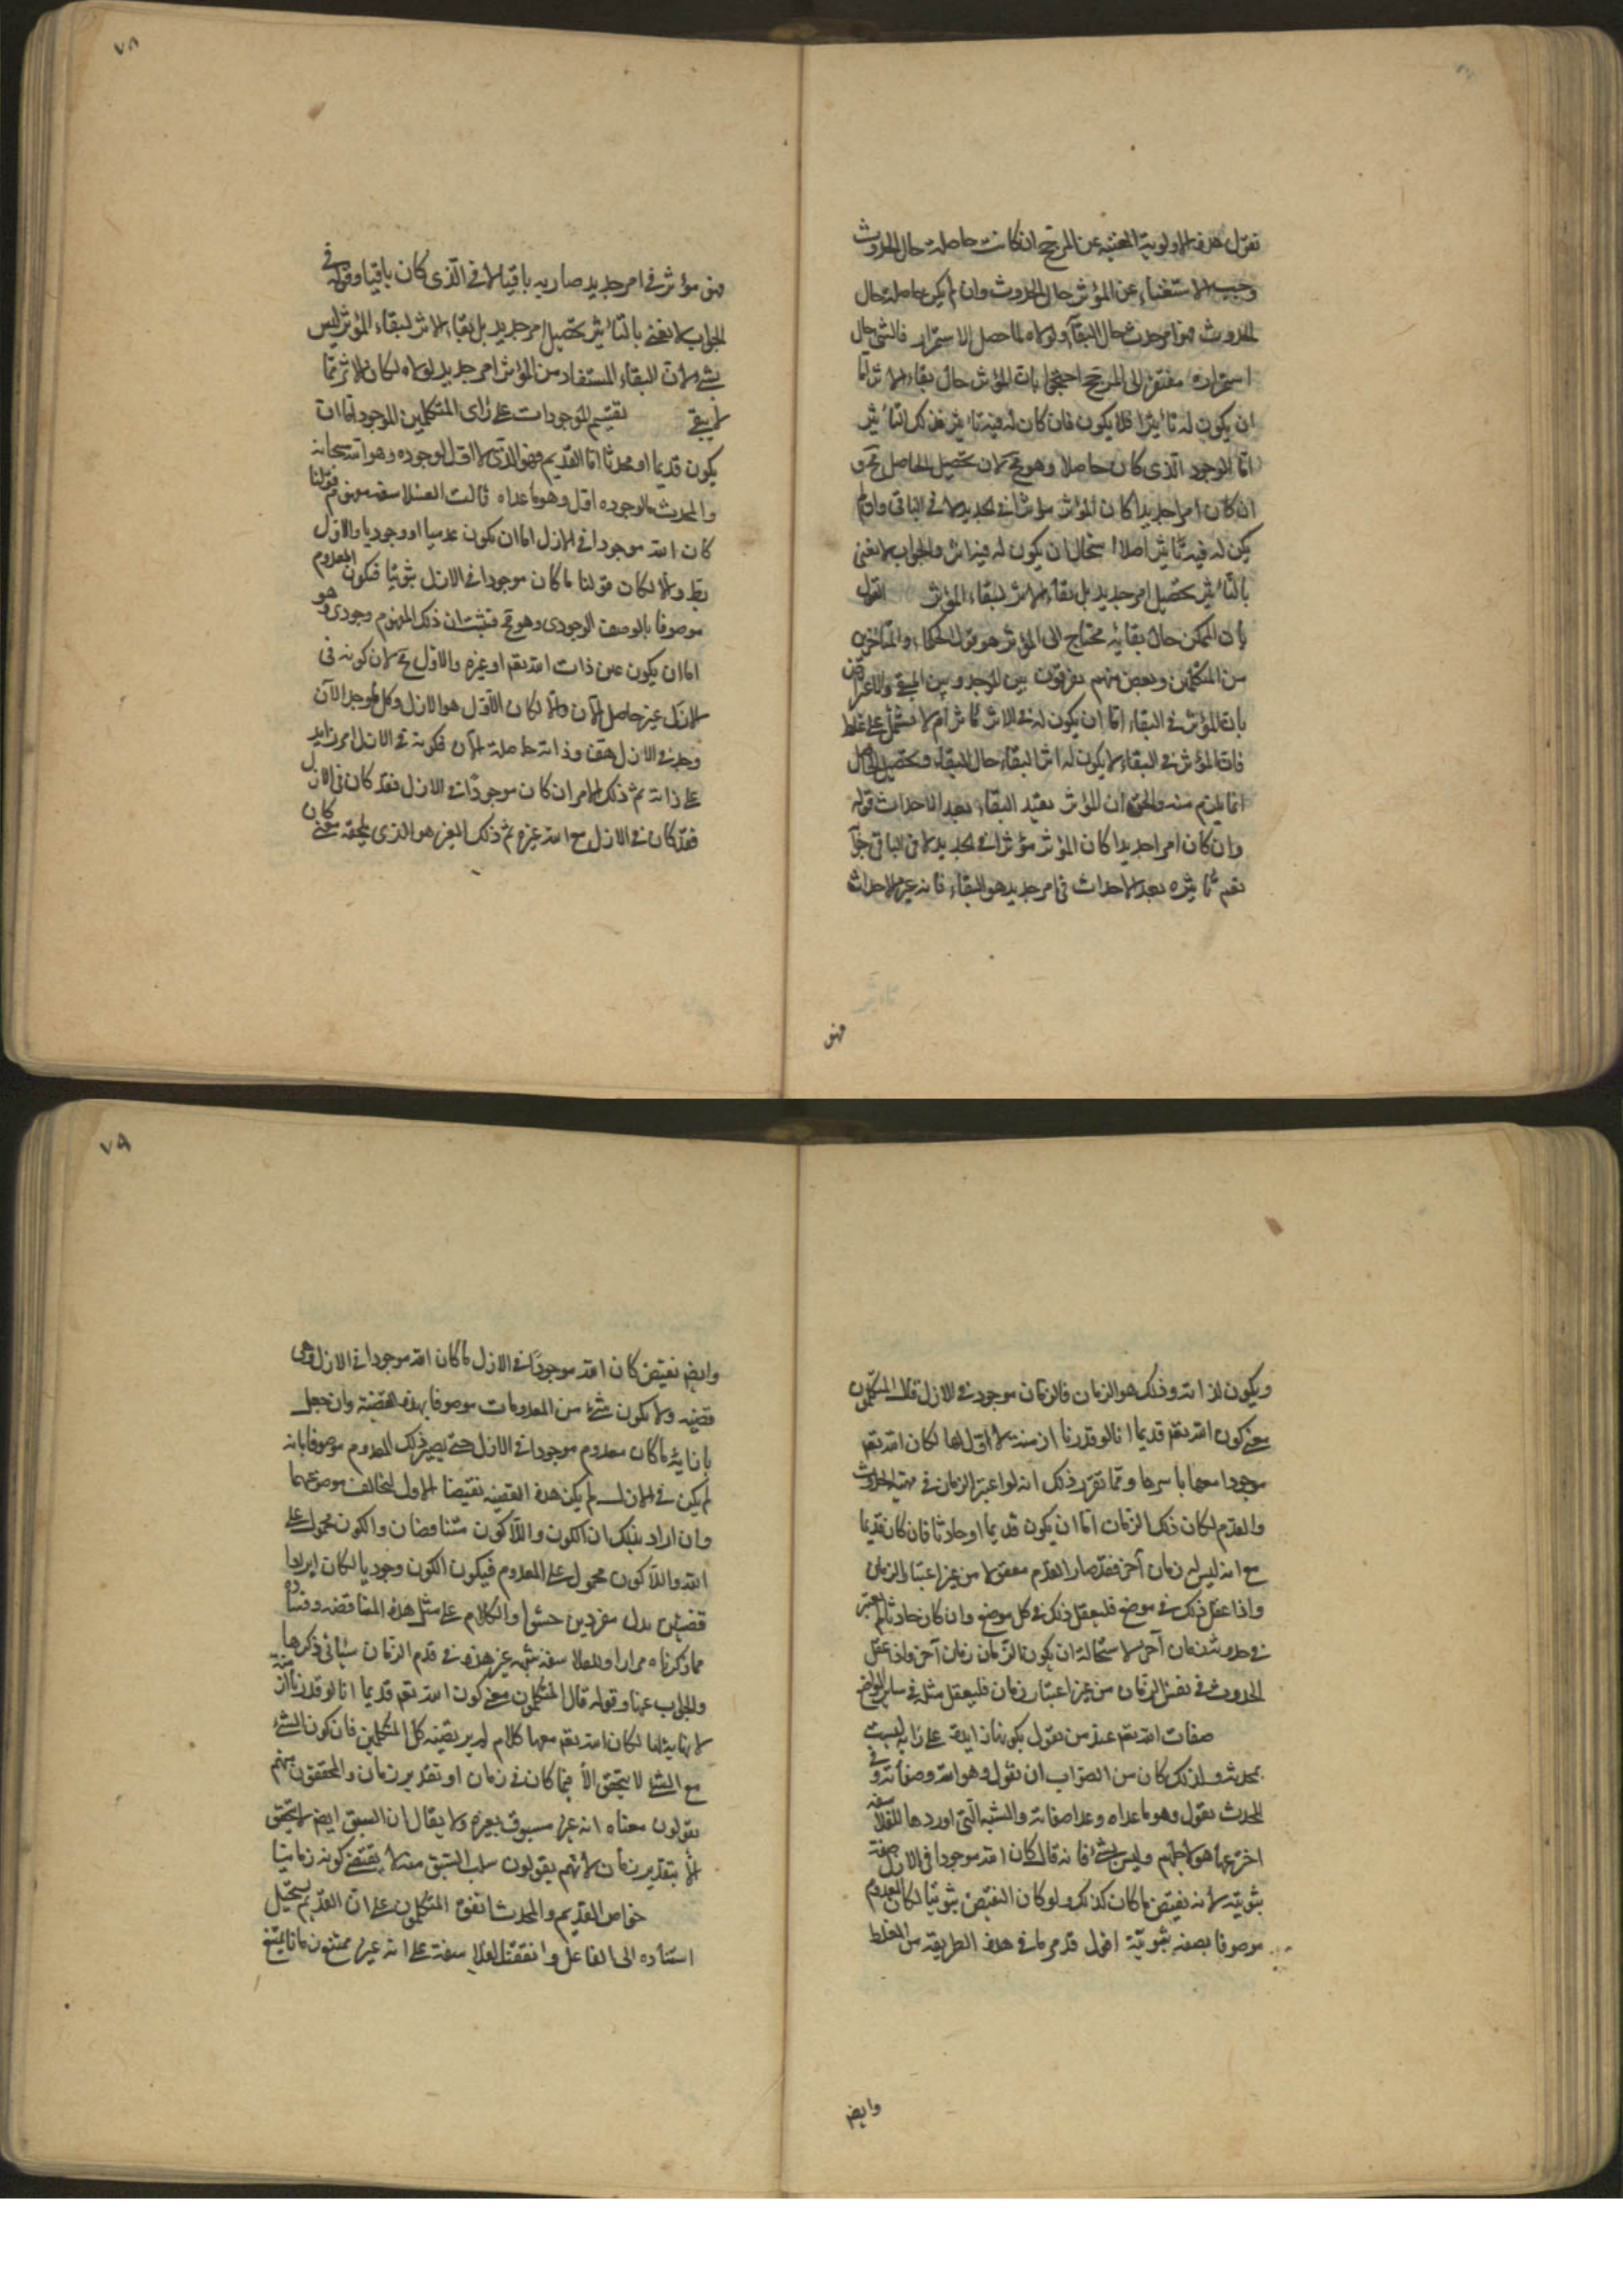 نقول هذه الاولوية المغنيه عن المرجح ان كانت حاصلة حال الحدوث
وجب الاستغناء عن المؤثر حال الحدوث وان لم يكن حاصلة حال
الحدوث فهو امر حدث حال البقاء ولولاه لما حصل الاستمرار فالشئ حال
استمراره مفتقر الى المرجح احتجوا بان المؤثر حال بقاء الاثر اما
ان يكون له تأثيرا فلا يكون فان كان له فيه تأثير فذلك التأثير
اما الوجود الذى كان حاصلا وهو مح لان تحصيل الحاصل مح و
ان كان امرا جديدا كان المؤثر مؤثرا فى الجديد لا فى الباقى وان لم
يكن له فيه تأثير اصلا استحال ان يكون له فيه اثر والجواب لا نعنى
بالتأثير تحصيل امر جديد بل بقاء الاثر لبقاء المؤثر اقول
بان الممكن حال بقائه محتاج الى المؤثر هو قول الحكماء والمتأخرين
من المتكلمين وبعض منهم يفرقون بين الموجد وبين المبقى والاعتراض
بان المؤثر فى البقاء اما ان يكون له فى الاثر تأثر ام لا فيشتمل على غلط
فان المؤثر فى البقاء لا يكون له اثر البقاء حال البقاء وتحصيل الحاصل
انما يلزم منه والحق ان المؤثر يفيد البقاء بعد الاحداث قوله
وان كان امرا جديدا كان المؤثر مؤثرا فى الجديد لا فى الباقى جوابه
نعم تأثيره بعد الاحداث فى امر جديد هو البقاء فانه غير الاحداث
فهو
٧٨
فهو مؤثر فى امر جديد صار به باقيا لا فى الذى كان باقيا وقوله فى
الجواب لا نعنى بالتأثير تحصيل امر جديد بل بقاء الاثر لبقاء المؤثر ليس
بشئ لان البقاء المستفاد من المؤثر امر جديد لولاه لكان الاثر مما
لا يبقى تقسيم الموجودات على رأى المتكلمين الموجود اما ان
يكون قديما او محدثا اما القديم فهو الذى لا اول لوجوده وهو الله سبحانه
والمحدث ما لوجوده اول وهو ما عداه قالت الفلاسفه مفهوم قولنا
كان الله موجودا فى الازل اما ان يكون عدميا او وجوديا والاول
بط والا لكان قولنا ما كان موجودا فى الازل ثبوتيا فيكون المعدوم
موصوفا بالوصف الوجودى وهو مح فثبت ان ذلك المفهوم وجودى وهو
اما ان يكون عين ذات الله تعم او غيره والاول مح لان كونه فى
الازل غير حاصل الآن والا لكان الآن هو الازل وكل ما وجد الآن
وجد فى الازل هف وذاته حاصلة الآن فكونه فى الازل امر زايد
على ذاته ثم ذلك الامر ان كان موجودا فى الازل فقد كان فى الازل
فقد كان فى الازل مع الله غيره ثم ذلك الغير هو الذى يلحقه معنى كان
ويكون لذاته وذلك هو الزمان فالزمان موجود فى الازل قال المتكلمون
معنى كون الله تعم قديما انا لو قدرنا ازمنة لا اول لها لكان الله تعم
موجودا معها باسرها ومما تقرر ذلك انه لو اعتبر الزمان فى مهية الحدوث
والقدم لكان ذلك الزمان اما ان يكون قديما او حادثا فان كان قديما
مع انه ليس له زمان آخر فقد صار القدم معقولا من غير اعتبار الزمان
واذا عقل ذلك فى موضع فليعقل ذلك فى كل موضع وان كان حادثا لم يعتبر
فى حدوثه زمان آخر لاستحالة ان يكون للزمان زمان آخر واذ عقل
الحدوث فى نفس الزمان من غير اعتبار زمان فليعقل مثله فى ساير المواضع
صفات الله تعم عند من يقول بكونها زايدة على ذاته ليست
بمحدثه ولذلك كان من الصواب ان نقول وهو الله وصفاته وفى
المحدث نقول وهو ما عداه وعدا صفاته والشبه التى اوردها للفلاسفه
اخترعها هو لاجلهم وليس بشئ فانه قال كان الله موجودا فى الازل صفة
ثبوتية لانه نقيض ما كان كذلك ولو كان النقيض ثبوتيا لكان المعدوم
موصوفا بصفه ثبوتية اقول قد مر ما فى هذه الطريقه من الغلط
وايض
٧٩
وايض نقيض كان الله موجودا فى الازل ما كان الله موجودا فى الازل وهى
قضيه ولا يكون شئ من المعدومات موصوفا بهذه القضية وان جعل
بازائه ما كان معدوم موجودا فى الازل حتى يصير ذلك المعدوم موصوفا بانه
لم يكن فى الازل لم يكن هذه القضيه نقيضا للاول لتخالف موضوعهما
وان اراد بذلك ان الكون واللاكون متناقضان والكون محمول على
الله واللاكون محمول على المعدوم فيكون الكون وجوديا لكان ايراد
قضيتين بدل مفردين حشوا والكلام على مثل هذه المناقضه وفساده
مما ذكرناه مرارا وللفلاسفه شبه غير هذه فى قدم الزمان سيأتى ذكرها
والجواب عنها وقوله قال المتكلمون معنى كون الله تعم قديما انا لو قدرنا ازمنة
لا نهاية لها لكان الله تعم معها كلام لم يرتضيه كل المتكلمين فان كون الشئ
مع الشئ لا يتحقق الا فيما كان فى زمان او تقدير زمان والمحققون منهم
يقولون معناه انه غير مسبوق بغيره ولا يقال ان السبق ايض لا يتحقق
الا بتقدير زمان لانهم يقولون سلب السبق منه لا يقتضى كونه زمانيا
خواص القديم والمحدث اتفق المتكلمون على ان القديم يستحيل
استناده الى الفاعل واتفقت الفلاسفة على انه غير ممتنع زمانا يمتنع